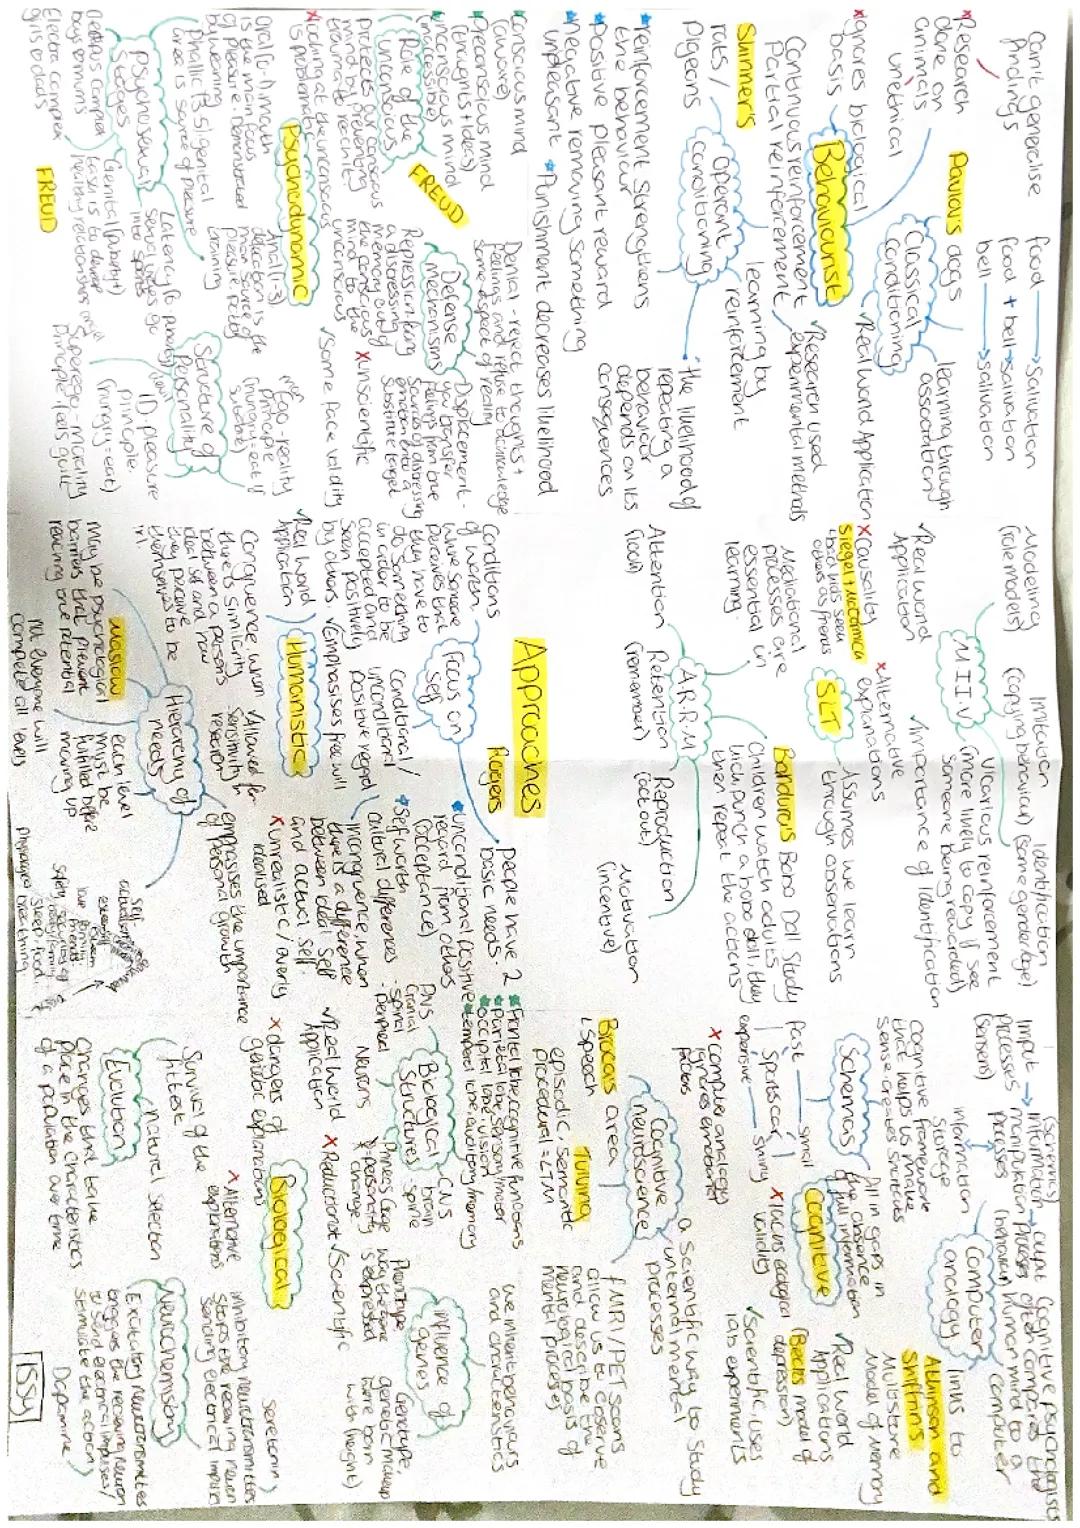 Approaches
Behaviourist
Can't generalise
findings
x Research
done on
animals
unethical
x Ignores biological
basis
Pavlov's dogs
food → Salivation
food + bell → salivation
bell → salivation
Classical
conditioning
learning through
association
✓ Real world Application
✓ Research used
experimental methods
Continuous reinforcement
Partial reinforcement
Skinner's
rats /
pigeons
Operant
conditioning
learning by
reinforcement
• the likelihood of
repeating a
behaviour
depends on its
consequences
* reinforcement strengthens
the behaviour
* Positive pleasant reward
* negative removing something
unpleasant * Punishment decreases likelihood
SLT
Modeling
(role models)
Imitation
(copying behaviour)
Identification
(same gender/age)
M.I.I.V
Vicarious reinforcement
(more likely to copy if see
someone being rewarded)
✓ Real world
Application
✓ Importance of Identification
x Causality
x Alternative
explanations
Siegel + McCormick
others as friends
Assumes we learn
through observations
Mediational
processes are
essential in
learning
Bandura's Bobo Doll Study
Children watch adults
kick, punch a bobo doll, they
then repeat the actions
A.R.R.M
Attention
(look)
Retention
(remember)
Reproduction
(act out)
Motivation
(incentive)
Cognitive
Input →
processes
(senses)
(schemas)
information →
manipulation
processes
output
(behaviour)
Storage
information
Cognitive psychologists
often compares the
human mind to a
computer
Computer
analogy
links to
Atkinson and
Shiffrin's
Multistore
Model of Memory
Cognitive framework
that helps us make
sense creates shortcuts
Schemas
fill in gaps in
the absence
of full information
fast
sports car
small
expensive
shiny
✓ Real world
Applications
(Beck's model of
depression)
x lacks ecological
validity
✓ Scientific, uses
lab experiments
x computer analogy
ignores emotions
Cognitive
neuroscience
a scientific way to study
internal mental
processes
Broca's area
↳ speech
Tulving
episodic, semantic
procedural = LTM
fMRI/PET scans
allow us to observe
and describe the
neurological basis of
mental processes
Psychodynamic
* conscious mind
(aware)
* Preconscious mind
(thoughts + ideas)
* unconscious mind
(inaccessible)
Role of the
unconscious
protects our conscious
mind by preventing
trauma to reach it
FREUD
Denial - reject thoughts +
feelings and refuse to acknowledge
some aspect of reality
Defense
mechanisms
Repression - bury
a distressing
memory out of
the conscious
mind to the
unconscious
Displacement -
you transfer
feelings from one
source of distressing
emotion onto a
substitute target
x unscientific
✓ Some face validity
x Looking at the unconscious
is problematic
oral (0-1) mouth
is the main focus
of pleasure. Demonstrated
by weaning
anal (1-3)
defecation is the
main source of
pleasure. potty
training
Phallic (3-5) genital
area is source of pleasure
Psychosexual
stages
Latency (6-puberty)
sexual urges go
into sports
Genital (puberty)
task is to develop
healthy relationships
Oedipus complex
boys ♥ mums
Electra complex
girls ♥ dads
FREUD
Structure of
Personality
Ego - reality
principle
ID, pleasure
principle.
(hungry = eat)
Superego - morality
principle, feels guilt
Humanistic
Focus on
self
Rogers
Conditions
of worth.
where someone
perceives that
they have to
do something
in order to be
accepted and
seen positively
by others.
Conditional/
unconditional
positive regard
People have 2
basic needs:
* unconditional positive
regard from others
(acceptance)
* Self worth
✓ Real world
Application
✓ Emphasises free will
cultural differences
Incongruence, when
there is a difference
between ideal self
and actual self
x unrealistic / overly
idealised
Congruence when
there's similarity
between a person's
ideal self and how
they perceive
themselves to be
✓ Allowed for
sensitivity
research
emphasises the importance
of personal growth
Maslow
Hierarchy of
needs
May be psychological
barriers that prevent
reaching one potential
each level
must be
fulfilled before
moving up
not everyone will
complete all levels
self-
actualisation
esteem
safety,
Physiological breathing
sleep, food
Biological
* Frontal lobe, cognitive functions
* parietal lobe, sensory/motor
* occipital lobe - vision
* temporal lobe, auditory/memory
PNS
Cranial
- spinal
- peripheral
Biological
structures
CNS
brain
spine
Neurons
Phineas Gage
= personality
change
we inherit behaviours
and characteristics
influence of
genes
Phenotype
way the gene
is expressed
Genotype,
genetic makeup
were born
with (height)
✓ Real world
Application
x Reductionist
✓ Scientific
x dangers of
genetic explanations
x Alternative
explanations
Survival of the
fittest
nature selection
Evolution
Changes that take
place in the characteristics
of a population over time
Serotonin )
inhibitory neurotransmitters
stops the receiving neuron
sending electrical impulses
Neurochemistry
Excitatory neurotransmitters
triggers the receiving neuron
to send electrical impulses/
stimulate the action
Dopamine
ISSY